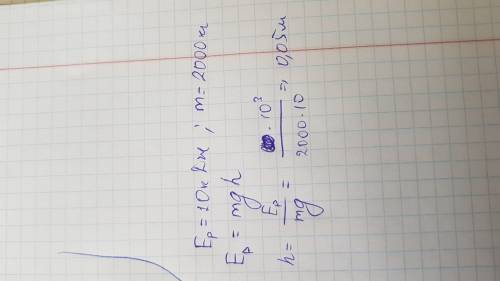 Eр = 10кДж ; m = 2000кг
Eр = mgh
h = Eр/mg = · 10³/2000·10 = 0,05м